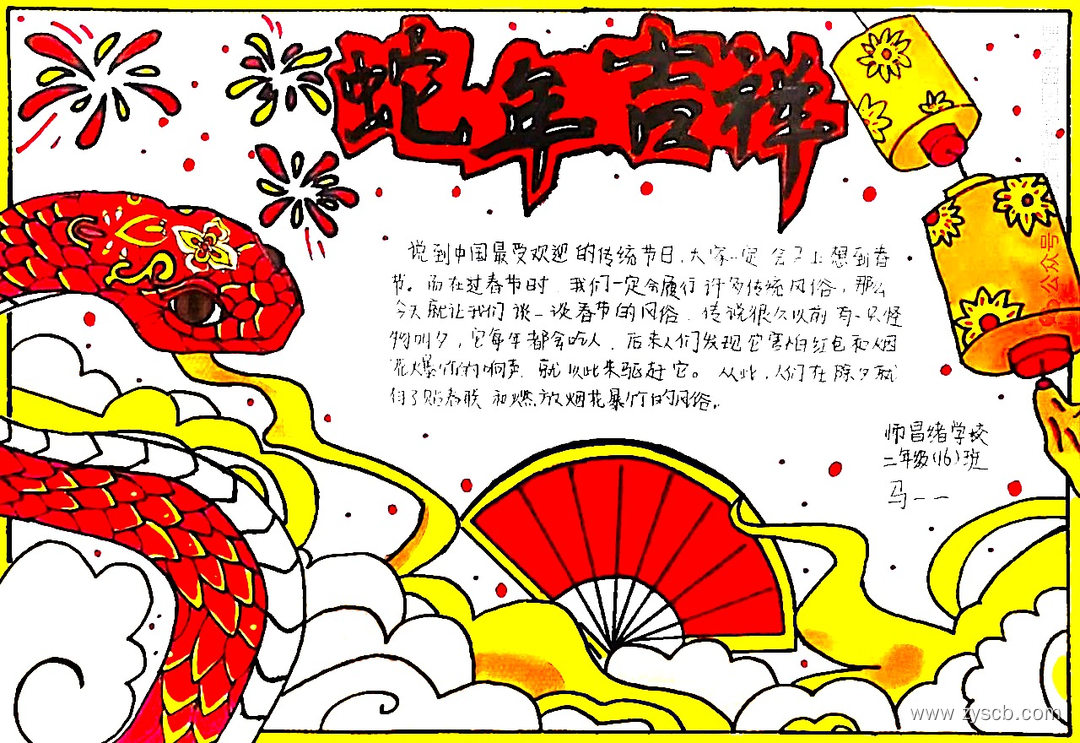 蛇年吉祥
说到中国最受欢迎的传统节日,大家一定会马上想到春
节。而在过春节时,我们一定会履行许多传统风俗,那么
今天就让我们谈一谈春节的风俗。传说很久以前有一只怪
物叫夕,它每年都会吃人。后来人们发现它害怕红包和烟
花爆竹的响声,就以此来驱赶它。从此,人们在除夕就
有了贴春联和燃放烟花暴竹的风俗。
师昌绪学校
二年级(16)班
马一一
公众号
www.zyscb.com